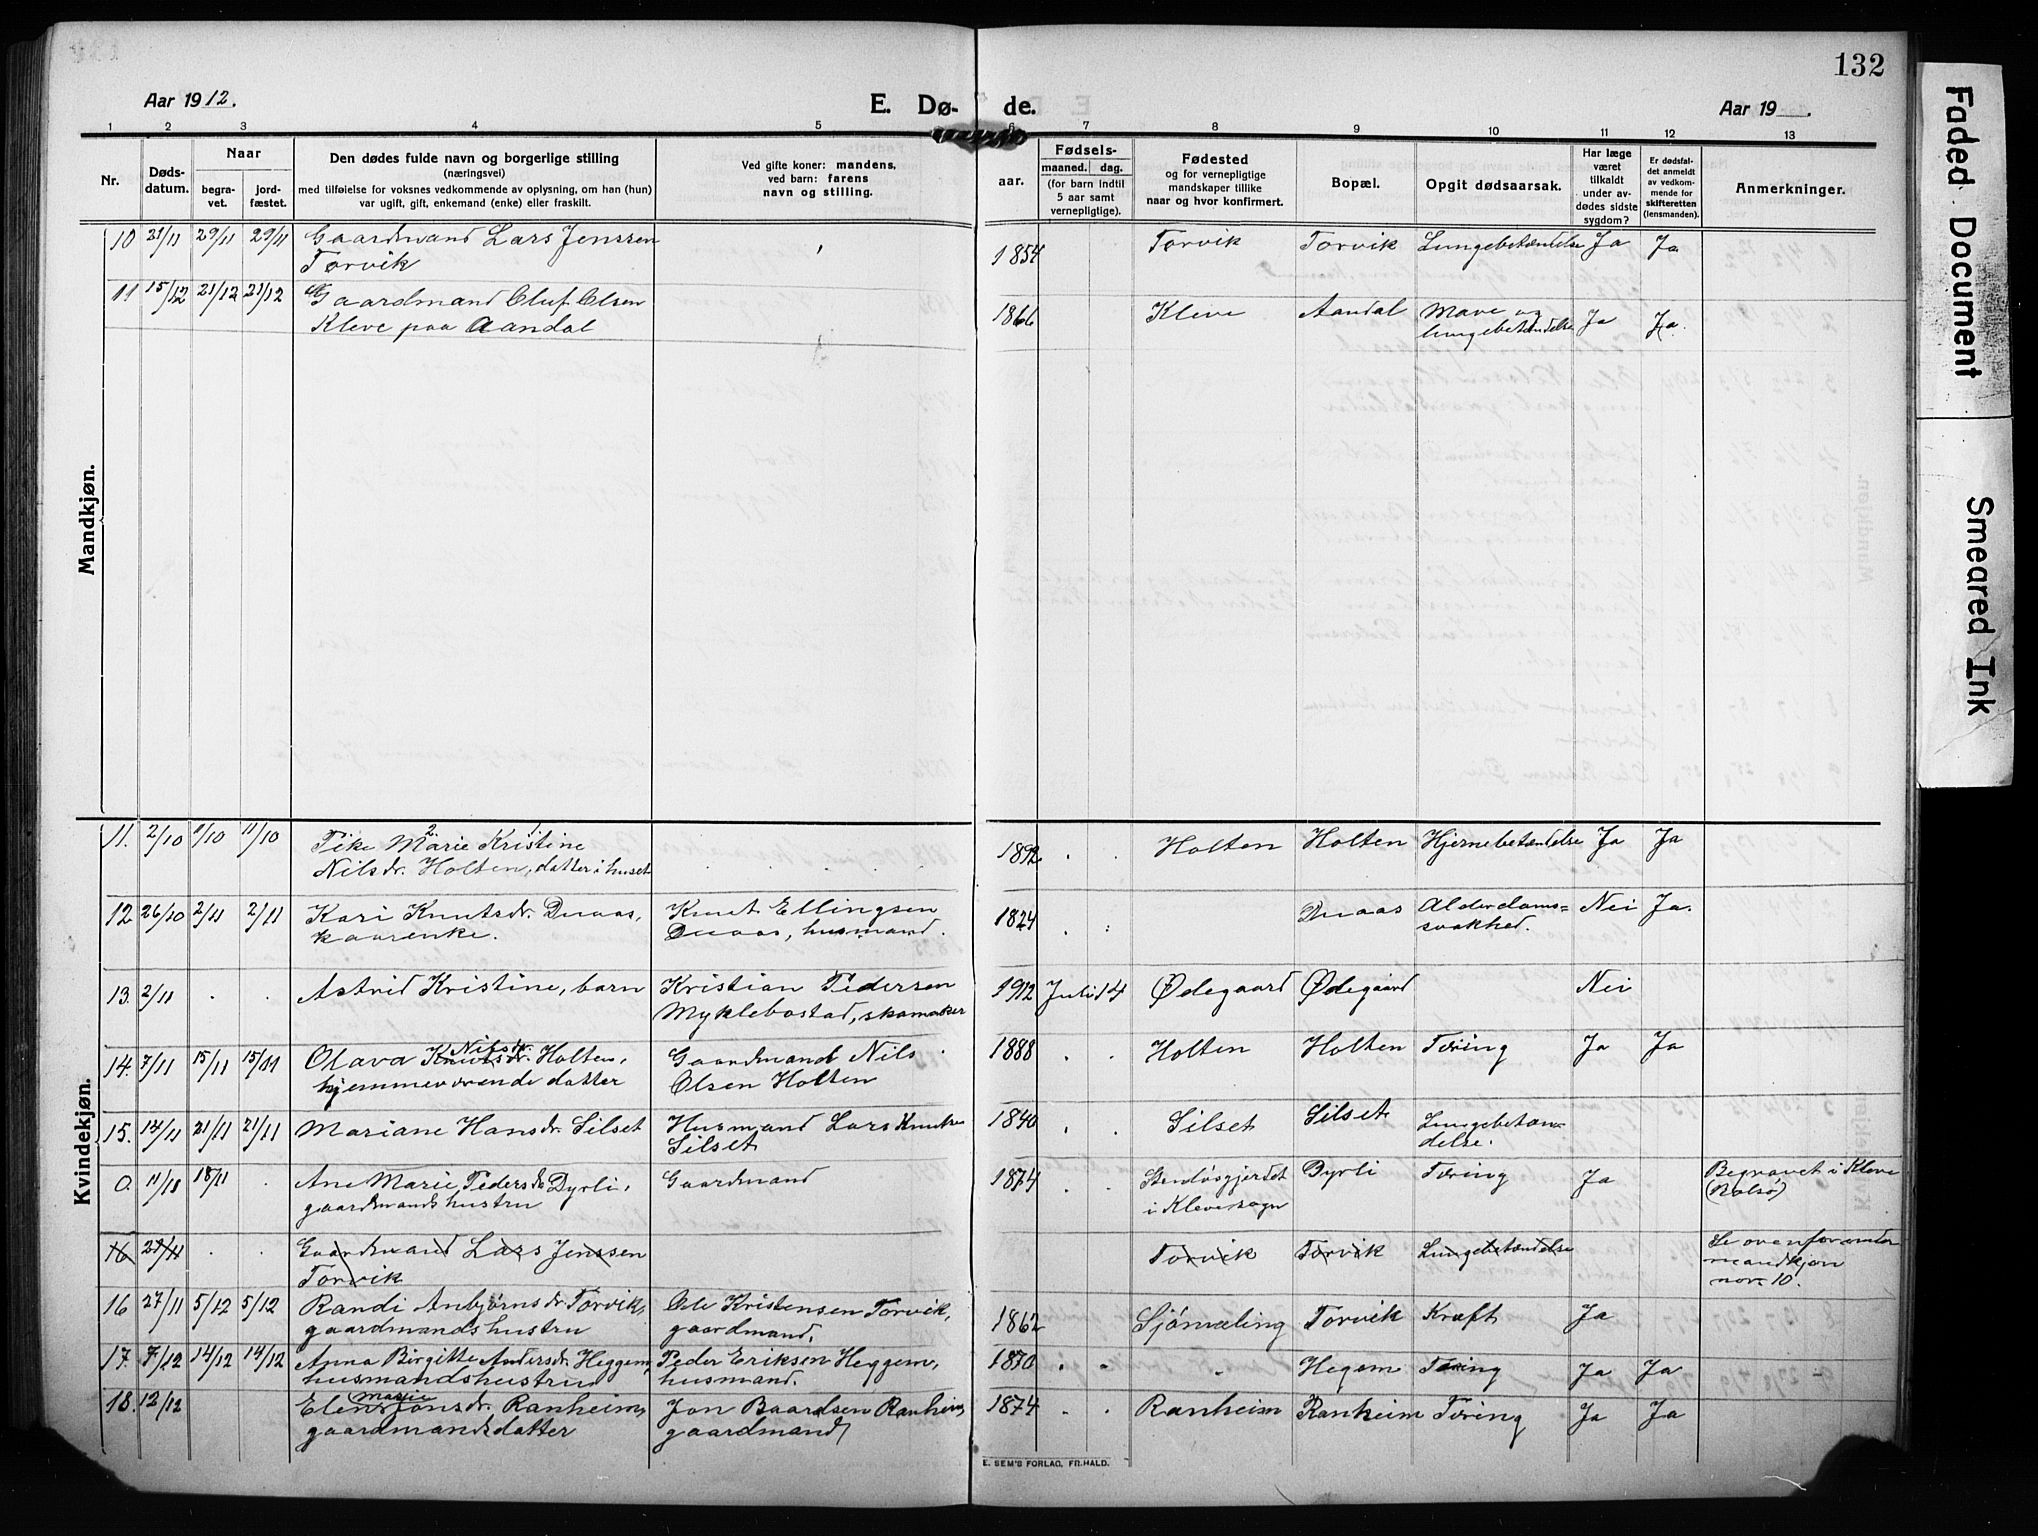 132
Aar 1912.
E. Dø-
de.
Aar 19 .
1 2 3 4 5 6 7 8 9 10 11 12 13
Nr.
Døds-
datum.
Naar
begra-
vet.
jord-
fæstet.
Den dødes fulde navn og borgerlige stilling
(næringsvei)
med tilføielse for voksnes vedkommende av oplysning, om han (hun)
var ugift, gift, enkemand (enke) eller fraskilt.
Ved gifte koner: mandens,
ved barn: farens
navn og stilling.
Fødsels-
aar.
maaned. dag.
(for barn indtil
5 aar samt
vernepligtige).
Fødested
og for vernepligtige
mandskaper tillike
naar og hvor konfirmert.
Bopæl.
Opgit dødsaarsak.
Har læge
været
tilkaldt
under av-
dødes sidste
sygdom?
Er dødsfal-
det anmeldt
av vedkom-
mende for
skifteretten
(lensmanden).
Anmerkninger.
Mandkjøn.
10 21/11 29/11 29/11 Gaardmand Lars Jenssen
Torvik
1854 Torvik Torvik Lungebetændelse Ja Ja
11 15/12 21/12 21/12 Gaardmand Oluf Olsen
Kleve paa Aandal
1866 Kleve Aandal Mave og
lungebetændelse Ja Ja.
Kvindekjøn.
11. 2/10 11/10 Pike Marie Kristine
2. 1
Nilsdr. Holten, datter i huset
1892 Holten Holten Hjernebetændelse Ja Ja
12 26/10 2/11 2/11 Kari Knutsdr. Duaas,
kaarenke.
Knut Ellingsen
Duaas, husmand.
1824 Duaas Alderdoms=
svakhed. Nei Ja.
13. 2/11 Astrid Kristine, barn
Kristian Pedersen
Myklebostad, skomaker
1912 Juli 14 Ødegaard Ødegaard Nei
14. 7/11 15/11 15/11 Olava Knutsdr. Holten,
Nilsdr.
hjemmeværende datter
Gaardmand Nils
Olsen Holten
1888 Holten Holten Tæring Ja Ja
15. 14/11 21/11 21/11 Mariane Hansdr. Silset
Husmand Lars Knutsen
Silset
1840 Silset Silset Lungebetæn=
delse.
0. 11/11 18/11 Ane Marie Pedersdr. Dyrli,
gaardmandshustru
Gaardmand
1874
i Klevesogn
Dyrli Tæring Ja
Begravet i Kleve
16 21/11 Gaardmand Lars Jenssen
Torvik
Torvik Torvik Lungebetændelse
Se ovenfor under
mandkjøn
nor. 10.
16 27/11 5/12 5/12 Randi Anbjørnsdr. Torvik,
gaardmandshustru
Ole Kristensen Torvik,
gaardmand.
1862 Sjømæling Torvik Kræft Ja
17. 7/12 14/12 14/12 Anna Birgitte Andersdr. Heggem,
husmandshustru
Peder Eriksen Heggem,
husmand.
1870 Hegem Tæring Ja Ja
18. 12/12 Elen Jonsdr. Ranheim,
Marie
gaardmandsdatter
Jon Baardsen Ranheim,
gaardmand
1874 Ranheim Ranheim Tæring Ja Ja
E. SEM'S FORLAG, FR.HALD.
Faded Document
Smeared Ink